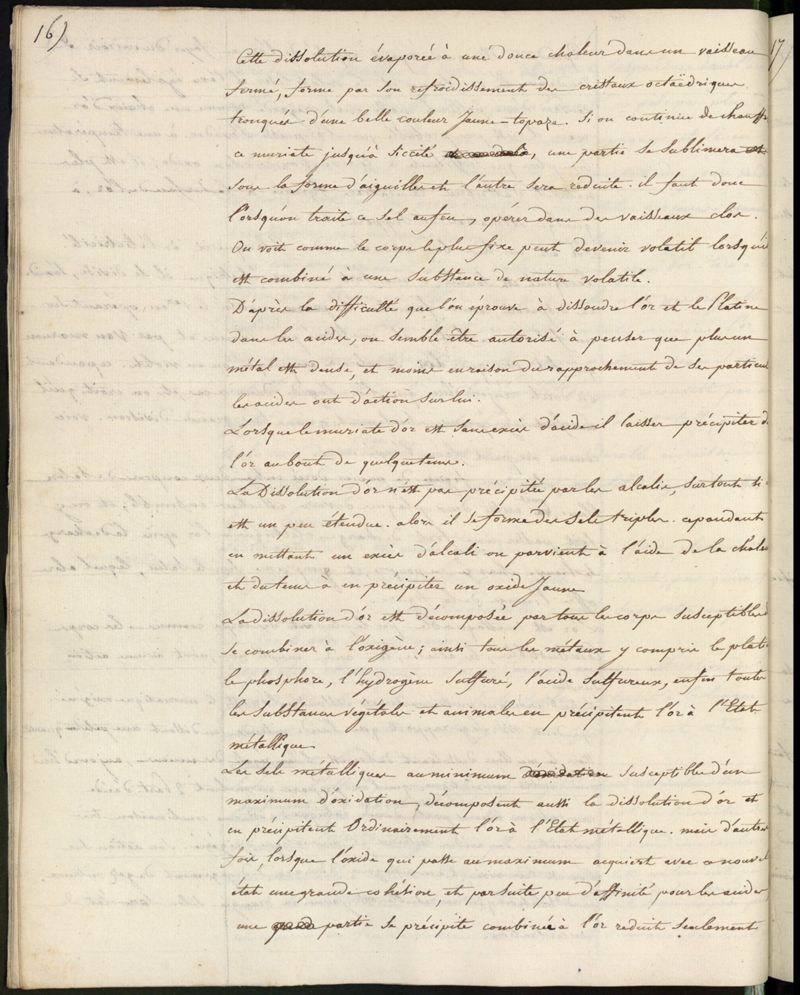 16)
17)
Cette dissolution évaporée à une douce chaleur dans un vaisseau
fermé, forme par son refroidissement des cristaux octaëdriques
tronqués d'une belle couleur Jaune-topaze. Si on continue de chauffe
ce muriate jusqu'à Siccité, une partie se sublimera
sous la forme d'aiguilles et l'autre sera réduite. il faut donc
l'orsqu'on traite ce sel au feu, opérer dans des vaisseaux clos.
On voit comme le corps le plus fixe peut devenir volatil lorsqu'il
est combiné à une substance de nature volatile.
D'après la difficulté que l'on éprouve à dissoudre l'or et le Platine
dans les acides, on semble être autorisé à penser que plus un
métal est dense, et moins en raison du rapprochement de ses particul
les acides ont d'action sur lui.
Lorsque le muriate d'or est sans excès d'acide il laisse précipiter d
l'or au bout de quelque tems.
La Dissolution d'or n'est pas précipitée par les alcalis, surtout si
est un peu étendue. alors il se forme des Sels triples. cependant
en mettant un excès d'alcali on parvient à l'aide de la chaleu
et du tems à en précipiter un oxide Jaune
La dissolution d'or est décomposée par tous les corps susceptibles d
se combiner à l'oxigène; ainsi tous les métaux y compris le plati
le phosphore, l'hydrogène sulfuré, l'acide sulfureux, enfin toutes
les substances végétales et animales en précipitent l'or à l'Etat
métallique
Les sels métalliques au minimum d'oxidation susceptibles d'un
maximum d'oxidation, décomposent aussi la dissolution d'or et
en précipitent Ordinairement l'or à l'Etat métallique. mais d'autres
fois, lorsque l'oxide qui passe au maximum acquiert avec ce nouvel
état une grande cohésion, et par suite peu d'affinité pour les acides,
une partie se précipite combinée à l'or réduit seulement